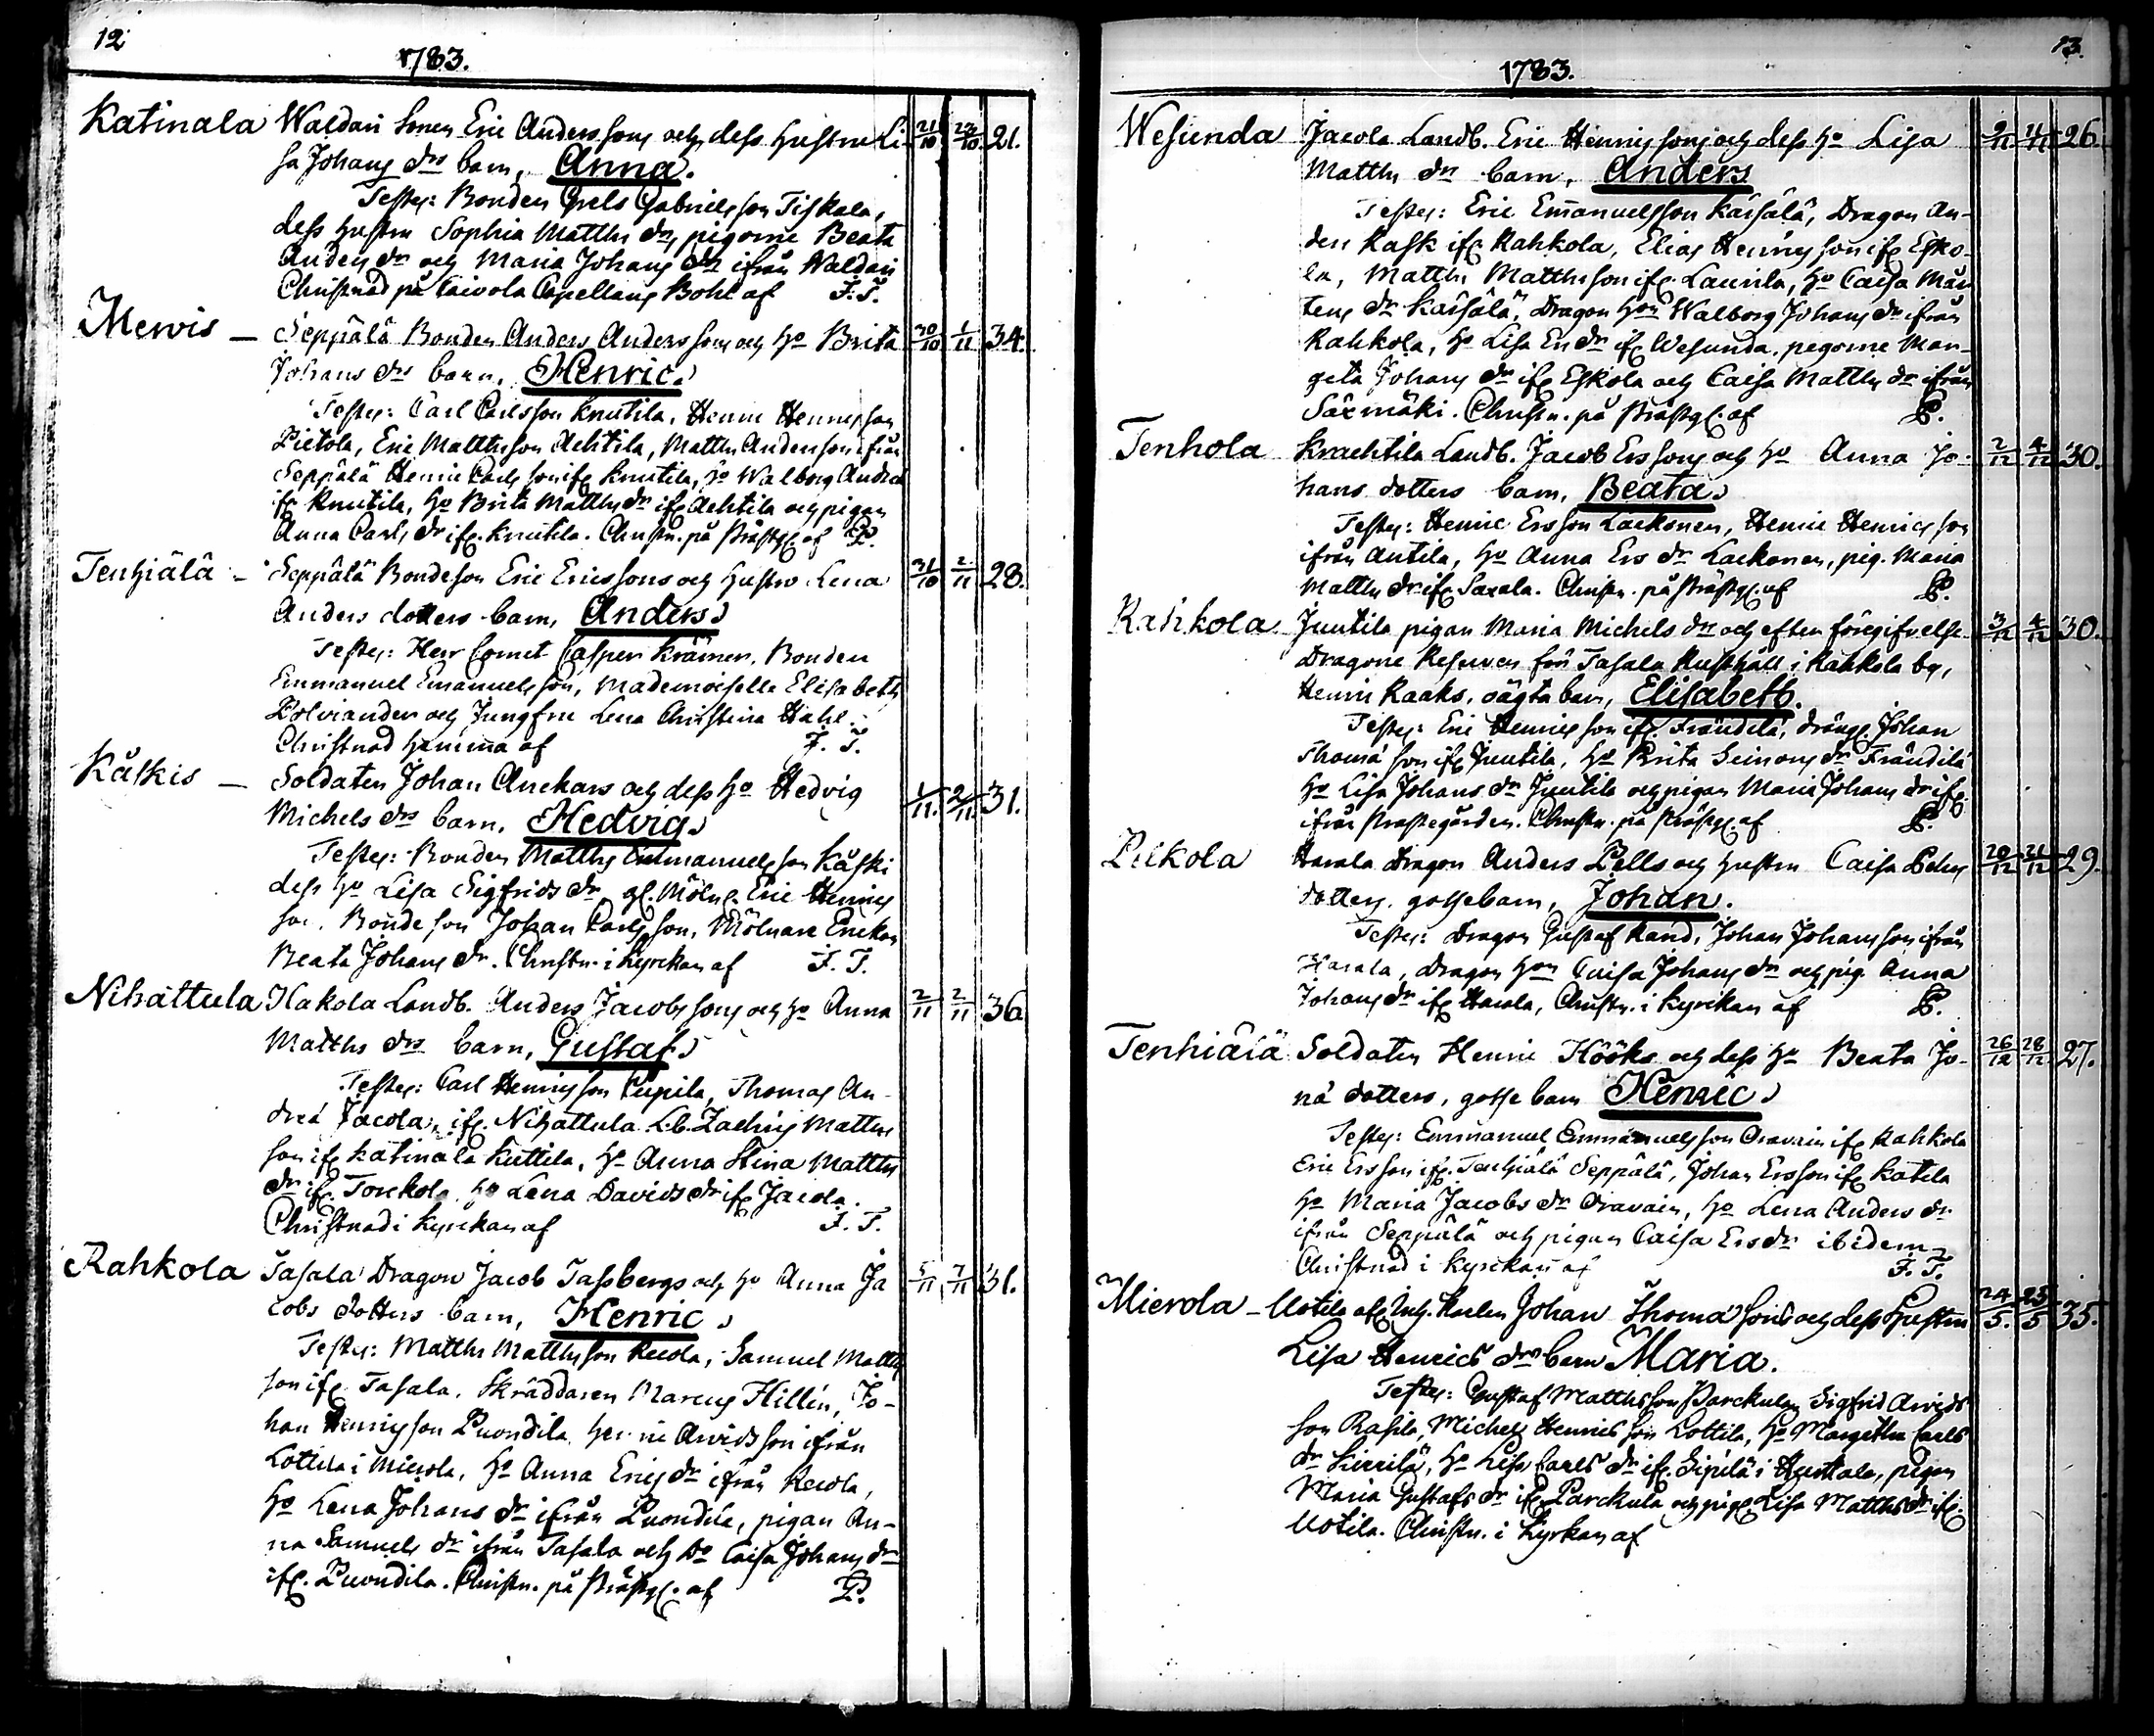 12
1783.
Katinala Waldari Sonen Eric Anders sons och dess hustru Li- 21/10 23/10 21.
sa Johans drs barn, Anna.
Testes: Bonden Grels Gabriels son Tiskala,
dess hustru Sophia Matths dr, pigorne Beata
Anders dr och Maria Johans dr ifrån Waldari
Christnad på Caivola Capellans Bohl af F. T.
Mervis – Seppälä Bonden Anders Anders sons och ho Brita 30/10 1/11 34.
Johans drs barn, Henric.
Testes: Carl Carlsson Knutila, Henric Henrics son
Pietola, Eric Matths son Achtila, Matths Anders son ifrån
Seppälä Henric Carls son ifr Knutila, ho Walborg Andrae
ifr Knutila, ho Brita Matths dr ifr Achtila och pigan
Anna Carls dr ifr. Knutila. Christn. på Prästg. af P.
Tenhiälä – Seppälä Bondeson Eric Ericssons och hustro Lena 31/10 2/11 28.
Anders dotters barn, Anders
Testes: Herr Cornet Casper Krämer, Bonden
Emmanuel Emanuels son, Mademoiselle Elisabeth
Polviander och Jungfru Lena Christina Hahl.
Christnad hemma af F. T.
Kåskis – Soldaten Johan Anckars och dess ho Hedvig 1/11. 2/11 31.
Michels drs barn, Hedvig
Testes: Bonden Matths Emmanuels son Kåski
dess ho Lisa Sigfrids dr, gl. Möln. Eric Henrics
son, Bonde son Johan Carls son, Mölnare Enckan
Beata Johans dr. Christn. i Kyrckan af F. T.
Nihattula Hakola Landb. Anders Jacobs sons och ho Anna 2/11 2/11 36
Matths drs barn, Gustaf
Testes: Carl Henrics son Pispila, Thomas An-
dreæ Jacola, ifr. Nihattula L.b. Zachris Matths
son ifr Katinala Kuttila, ho Anna Stina Matths
dr ifr. Torckola, ho Lena Davids dr ifr Jacola.
Christnad i Kyrckan af F. T.
Rahkola Tasala Dragon Jacob Tassbergs och ho Anna Ja 5/11 7/11 31.
cobs dotters barn, Henric
Testes: Matths Matths son Kecola, Samuel Matths
son ifr. Tasala, Skräddaren Marcus Hillén, Jo-
han Henrics son Puondila, Henric Arvids son ifrån
Lottila i Mierola, ho Anna Erics dr ifrån Kecola,
ho Lena Johans dr ifrån Puondila, pigan An-
na Samuels dr ifrån Tasala och Do Caisa Johans dr
ifr. Puondila. Christn. på Prästg. af P.
13.
1783.
Wesunda Jacola Landb. Eric Henrics sons och dess ho Lisa 9/11 11/11 26
Matths drs barn, Anders
Testes: Eric Emanuelsson Kaisala, Dragon An-
ders Rask ifr Rahkola, Elias Henrics son ifr Esko-
la, Matths Matths son ifr. Laurila, ho Caisa Mår
tens dr Kaisala, Dragon hon Walborg Johans dr ifrån
Rahkola, ho Lisa Ers dr ifr Wesunda, pigorne Mar-
geta Johans dr ifr Eskola och Caisa Matths dr ifrån
Säxmäki. Christn. på Prästg. af P.
Tenhola Knachtila Landb. Jacob Ers sons och ho Anna Jo- 2/12 4/12 30.
hans dotters barn, Beata
Testes: Henric Ersson Lackonen, Henric Henrics son
ifrån Antila, ho Anna Ers dr Lackonen, pig. Maria
Matths dr ifr. Saxala. Christn. på Prästg. af P.
Rahkola Juutila pigan Maria Michels drs och efter föregifvelse 3/12 4/12 30.
Dragone Reserven från Tasala Rusthåll i Rahkola by,
Henric Raaks, oägta barn, Elisabeth.
Testes: Eric Henrics son ifr. Frändilä, dräng. Johan
Thomæ son ifr Juutila, ho Brita Seimons dr Frändilä
ho Lisa Johans dr Juutila och pigan Maria Johans dr ifr.
ifrån Prästegården. Christn. på Prästg. af P.
Pelkola Harala Dragon Anders Pells och hustru Caisa Pehrs 20/12 21/12 29.
dotters gossebarn, Johan.
Testes: Dragon Gustaf Rand, Johan Johans son ifrån
Harala, Dragon hon Caisa Johans dr och pig. Anna
Johans dr ifr Harala, Christn. i Kyrckan af P.
Tenhiälä Soldaten Henric Hööks och dess ho Beata Jo- 26/12 28/12 27.
næ dotters, gosse barn Henric
Testes: Emmanuel Emmanuels son Aravain ifr Rahkola
Eric Ersson ifr. Tenhiälä Seppälä, Johan Ersson ifr Katila
ho Maria Jacobs dr Aravain, ho Lena Anders dr
ifrån Seppälä och pigan Caisa Ers dr ibidem
Christnad i Kyrckan af F. T.
Mierola – Uotila Johan Thomæ sons och dess hustru 24/5. 25/5 35.
Lisa Henrics drs barn Maria.
Testes: Gustaf Matths son Parckula, Sigfrid Arvids
son Rasila, Michels Henrics son Lottila, ho Margetha Carls
dr Kirrilä, ho Lisa Carls dr ifr. Sipilä i Hurttala, pigan
Maria Gustafs dr ifr. Parckula och pig. Lisa Matths dr ifr.
Uotila. Christn. i Kyrkan af